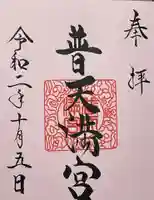 奉拝
普天満宮
令和二年十月五日